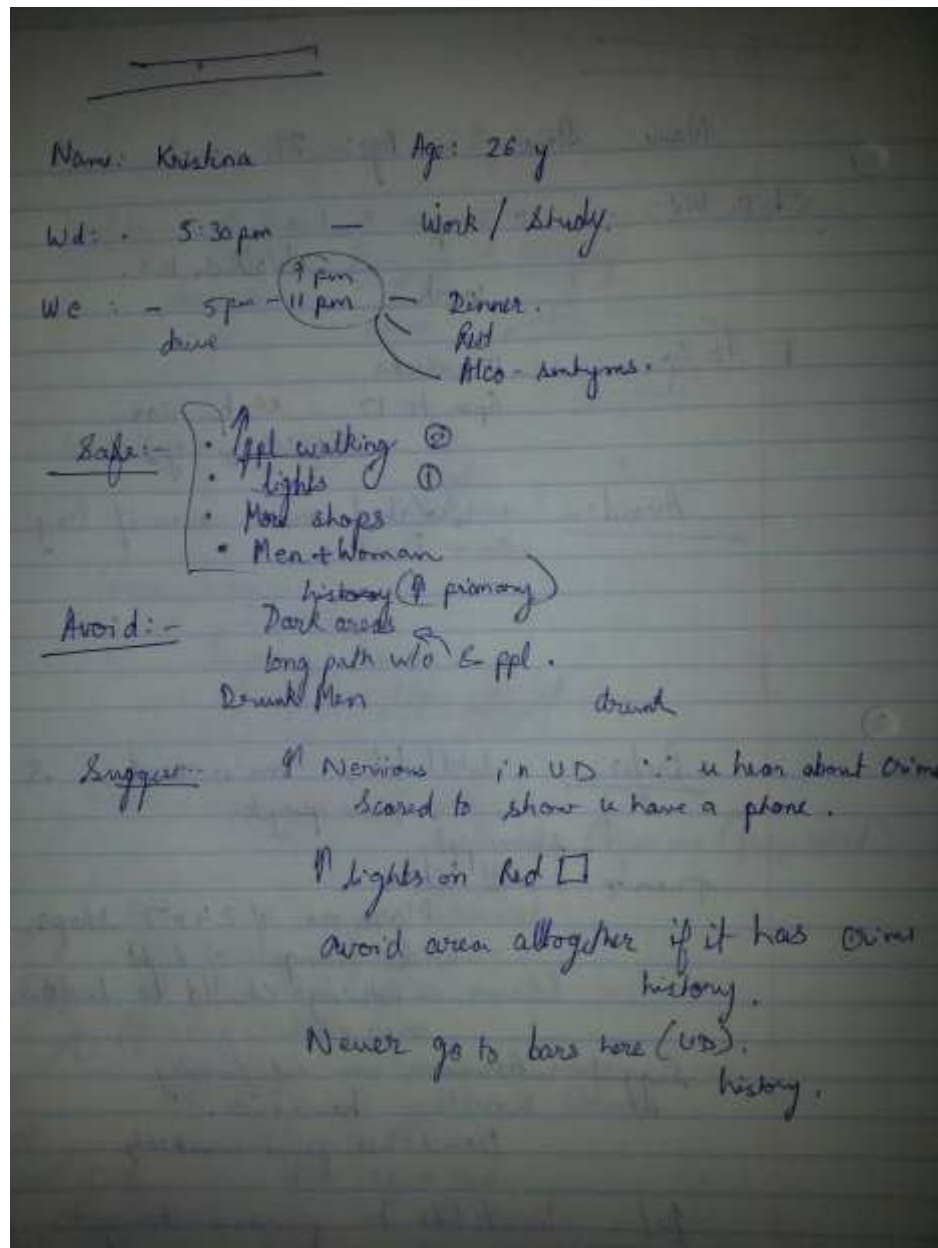 Name: Kristina Age: 26 y
Wd: . 5:30 pm — Work / Study.
9 pm
We : - 5 pm - 11 pm — Dinner.
drive
Alco - smtyms.
Safe:- • ↑ ppl walking ②
• ↑ lights ①
• More shops
• Men + Woman
history (↑ primary)
Avoid:- Dark areas
long path w/o ppl.
Drunk Men drunk
↑ Nervous in UD ∵ u hear about crime
Scared to show u have a phone.
↑ lights on Red □
avoid area altogether if it has crime
history.
Never go to bars here (UD).
history.